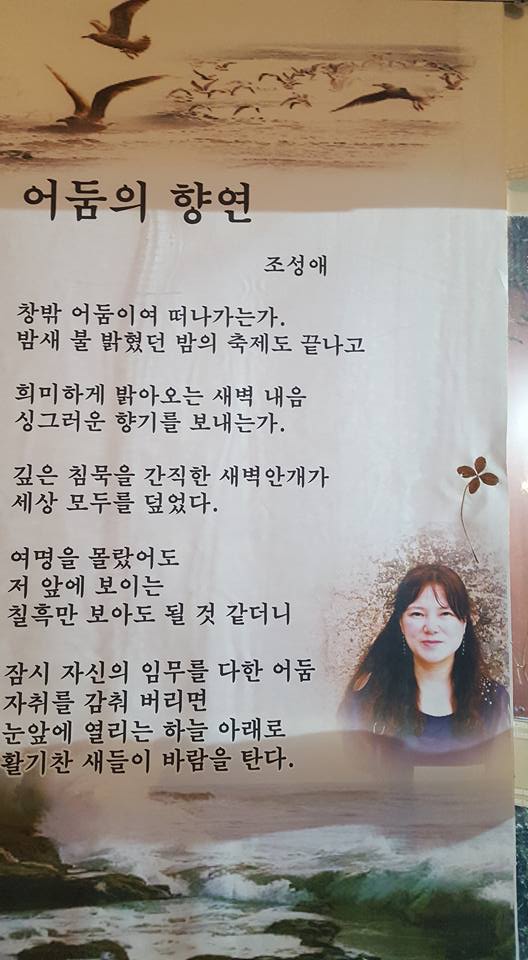 어둠의 향연
조성애
창밖 어둠이여 떠나가는가.
밤새 불 밝혔던 밤의 축제도 끝나고
희미하게 밝아오는 새벽 내음
싱그러운 향기를 보내는가.
깊은 침묵을 간직한 새벽안개가
세상 모두를 덮었다.
여명을 몰랐어도
저 앞에 보이는
칠흑만 보아도 될 것 같더니
잠시 자신의 임무를 다한 어둠
자취를 감춰 버리면
눈앞에 열리는 하늘 아래로
활기찬 새들이 바람을 탄다.